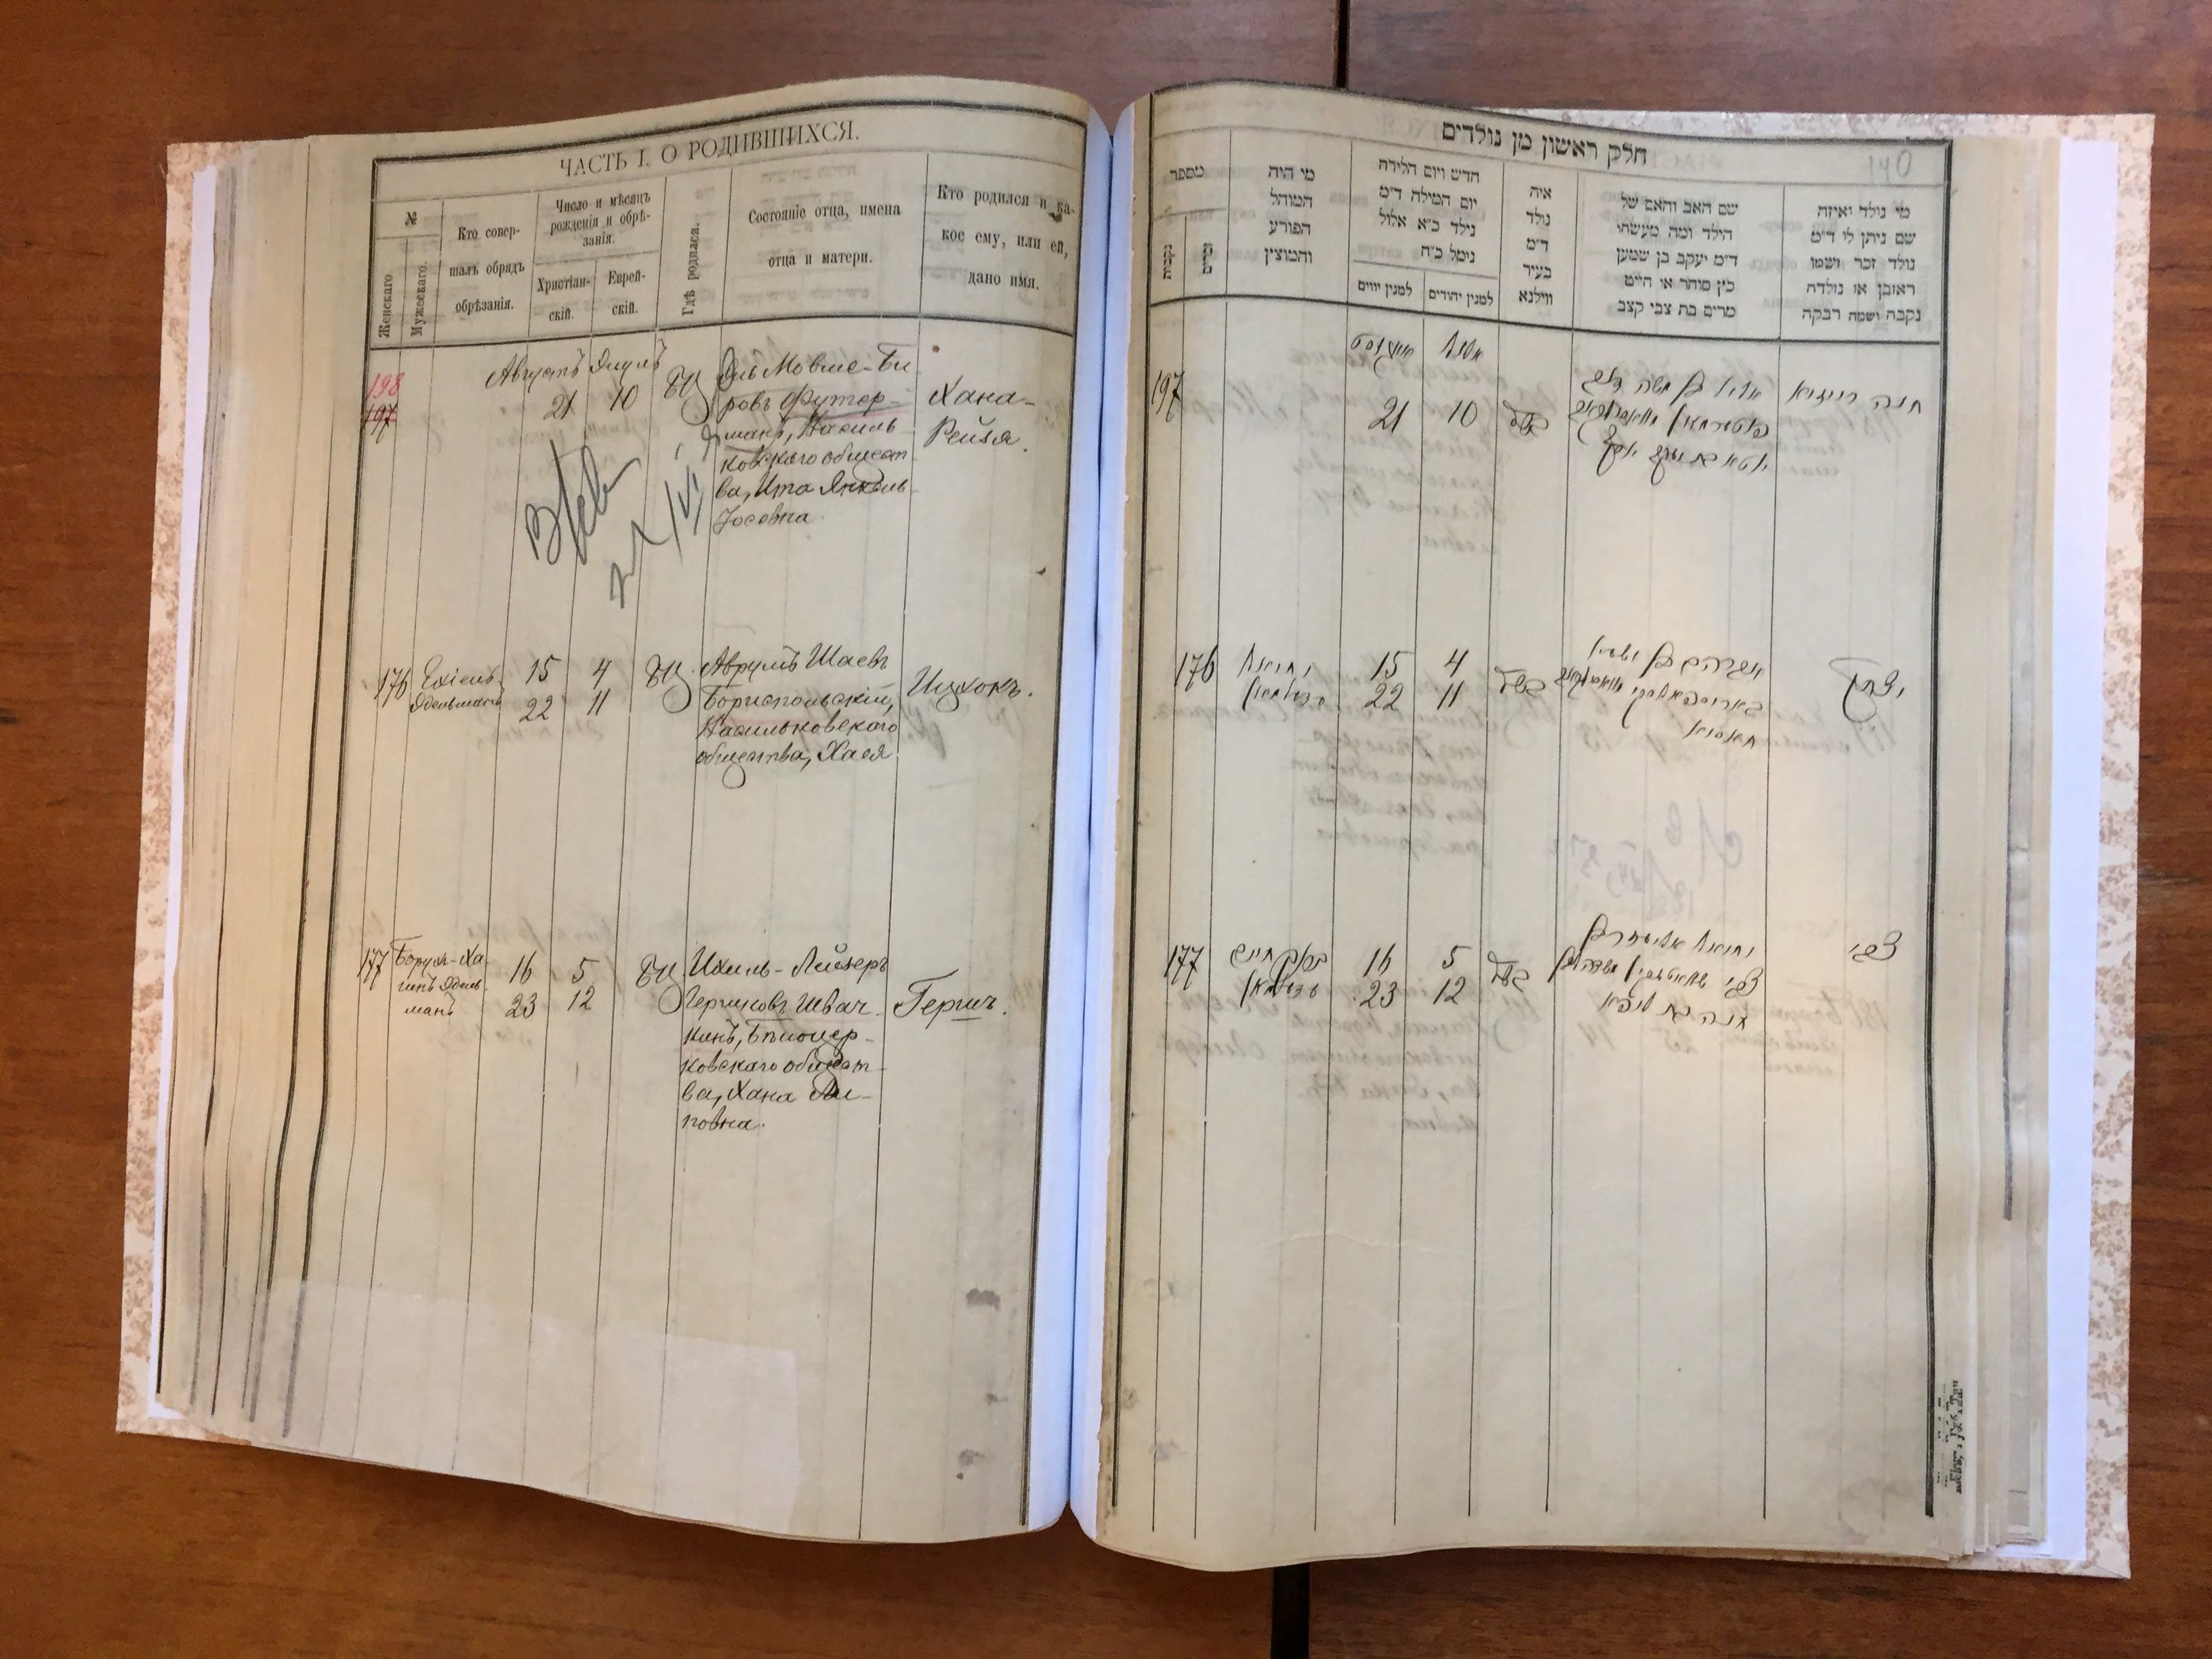 ЧАСТЬ I. О РОДИВШИХСЯ.
№
Женскаго
Мужескаго.
Кто совер-
шалъ обрядъ
обрѣзанія.
Число и мѣсяцъ
рожденія и обрѣ-
занія.
Христіан-
скій.
Еврей-
скій.
Гдѣ родился.
Состояніе отца, имена
отца и матери.
Кто родился и ка-
кое ему, или ей,
дано имя.
198
197
Августъ
21 10
БЦ
Мовше-Бе
ровъ Футер-
манъ, Василь-
ковскаго общест
ва, Ита Янкель
Іосевна.
Хана-
Рейзя.
176
Ехіель
Эдельманъ
15 4
22 11
БЦ.
Аврумъ Шаевъ
Бориспольскій,
Васильковскаго
общества, Хася
Ицхокъ.
177
Борух-Ха
имъ Эдель
манъ
16 5
23 12
БЦ
Ихиль-Лейзеръ
Гершковъ Швач-
кинъ,
ковскаго общест-
ва, Хана Ли-
повна.
Гершъ.
חלק ראשון מן נולדים
140
מספר
נקבות
זכרים
מי היה
המוהל
הפורע
והמוצץ
חדש ויום הלידה
יום המילה ד״מ
נולד כ״א אלול
נימל כ״ח
למנין יוונים
למנין יהודים
איה
נולד
ד״מ
בעיר
ווילנא
שם האב והאם של
הילד ומה מעשהו
ד״מ יעקב בן שמעון
כ״ץ סוחר או חייט
מרים בת צבי קצב
מי נולד ואיזה
שם ניתן לו ד״מ
נולד זכר ושמו
ראובן או נולדה
נקבה ושמה רבקה
אויגוסט אלול
197
21 10
חנה רייזיא
176
יחיאל
עדעלמאן
15 4
22 11
אברהם בן ישעי׳
יצחק
177
ברוך חיים
עדעלמאן
16 5
23 12
יחיאל אליעזר בן
חנה בת ליפא
צבי